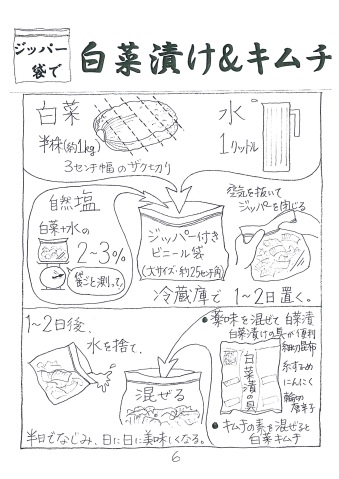 ジッパー袋で
白菜漬け&キムチ
白菜
半株(約1kg)
3センチ幅のザク切り
水
1リットル
自然塩
白菜+水の
2〜3%
袋ごと測って
ジッパー付き
ビニール袋
(大サイズ・約25センチ角)
空気を抜いて
ジッパーを閉じる
冷蔵庫で1〜2日置く。
1〜2日後、
水を捨て、
混ぜる
半日でなじみ、日に日に美味しくなる。
●薬味を混ぜて白菜漬
白菜漬けの具が便利
白菜漬の具
細切昆布
糸するめ
にんにく
輪切
唐辛子
●キムチの素を混ぜると
白菜キムチ
6